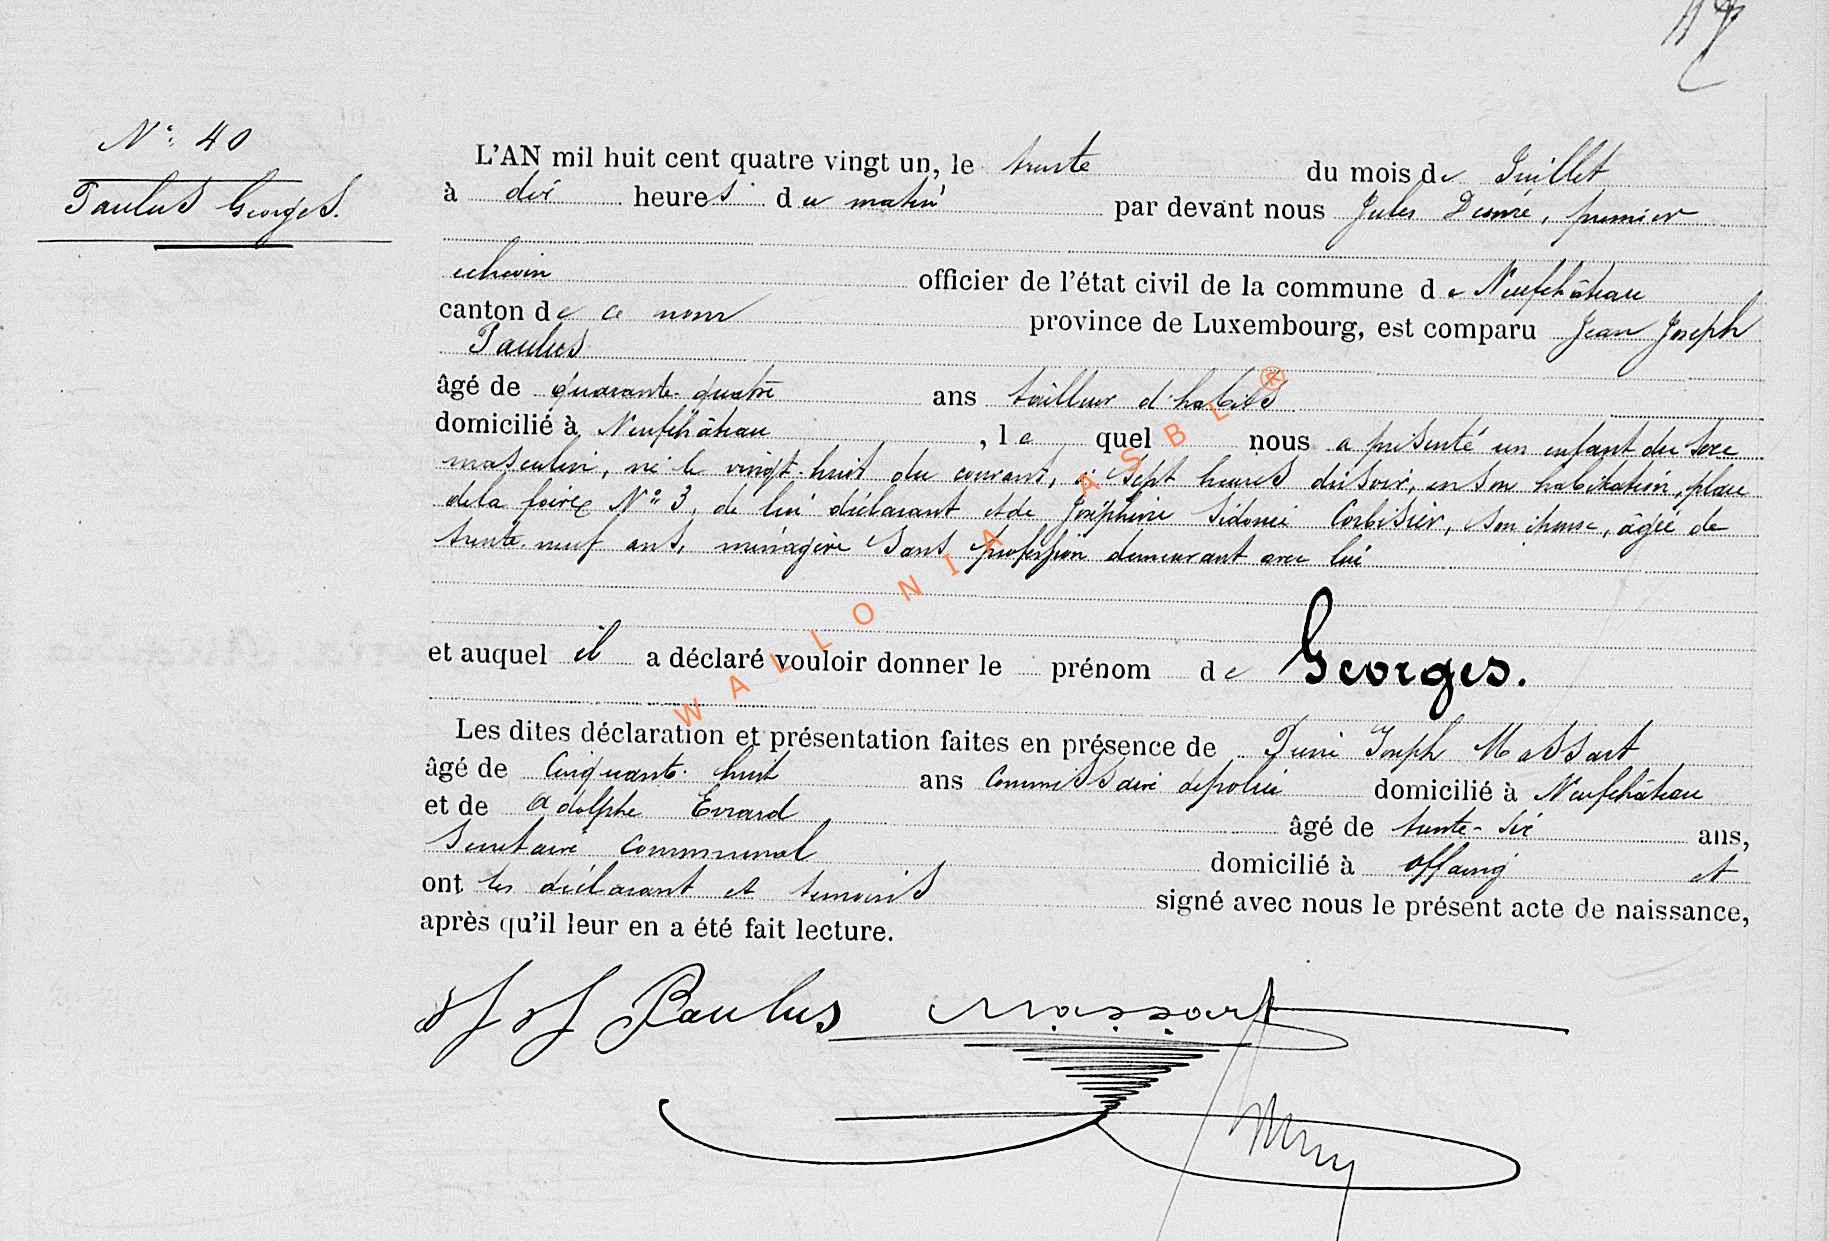 N°: 40
Paulus Georges.
L'AN mil huit cent quatre vingt un, le trente du mois de Juillet
à dix heures du matin par devant nous Jules premier
echevin officier de l'état civil de la commune de Neufchâteau
canton de ce nom province de Luxembourg, est comparu Jean Joseph
Paulus
âgé de quarante-quatre ans tailleur d'habits
domicilié à Neufchâteau, le quel nous a présenté un enfant du sexe
masculin, né le vingt-huit du courant, à sept heures du soir, en son habitation, place
de la foire N° 3, de lui déclarant et de Joséphine Sidonie Corbisier, son épouse, âgée de
trente-neuf ans, ménagère sans profession demeurant avec lui
et auquel il a déclaré vouloir donner le prénom de Georges.
Les dites déclaration et présentation faites en présence de Joseph Massart
âgé de Cinquante-huit ans Commissaire de police domicilié à Neufchâteau
et de Adolphe Evrard âgé de trente-six ans,
Secrétaire Communal domicilié à Offaing et
ont les déclarant et témoins signé avec nous le présent acte de naissance,
après qu'il leur en a été fait lecture.
JJ Paulus Massart
WALLONIA ASBL ®